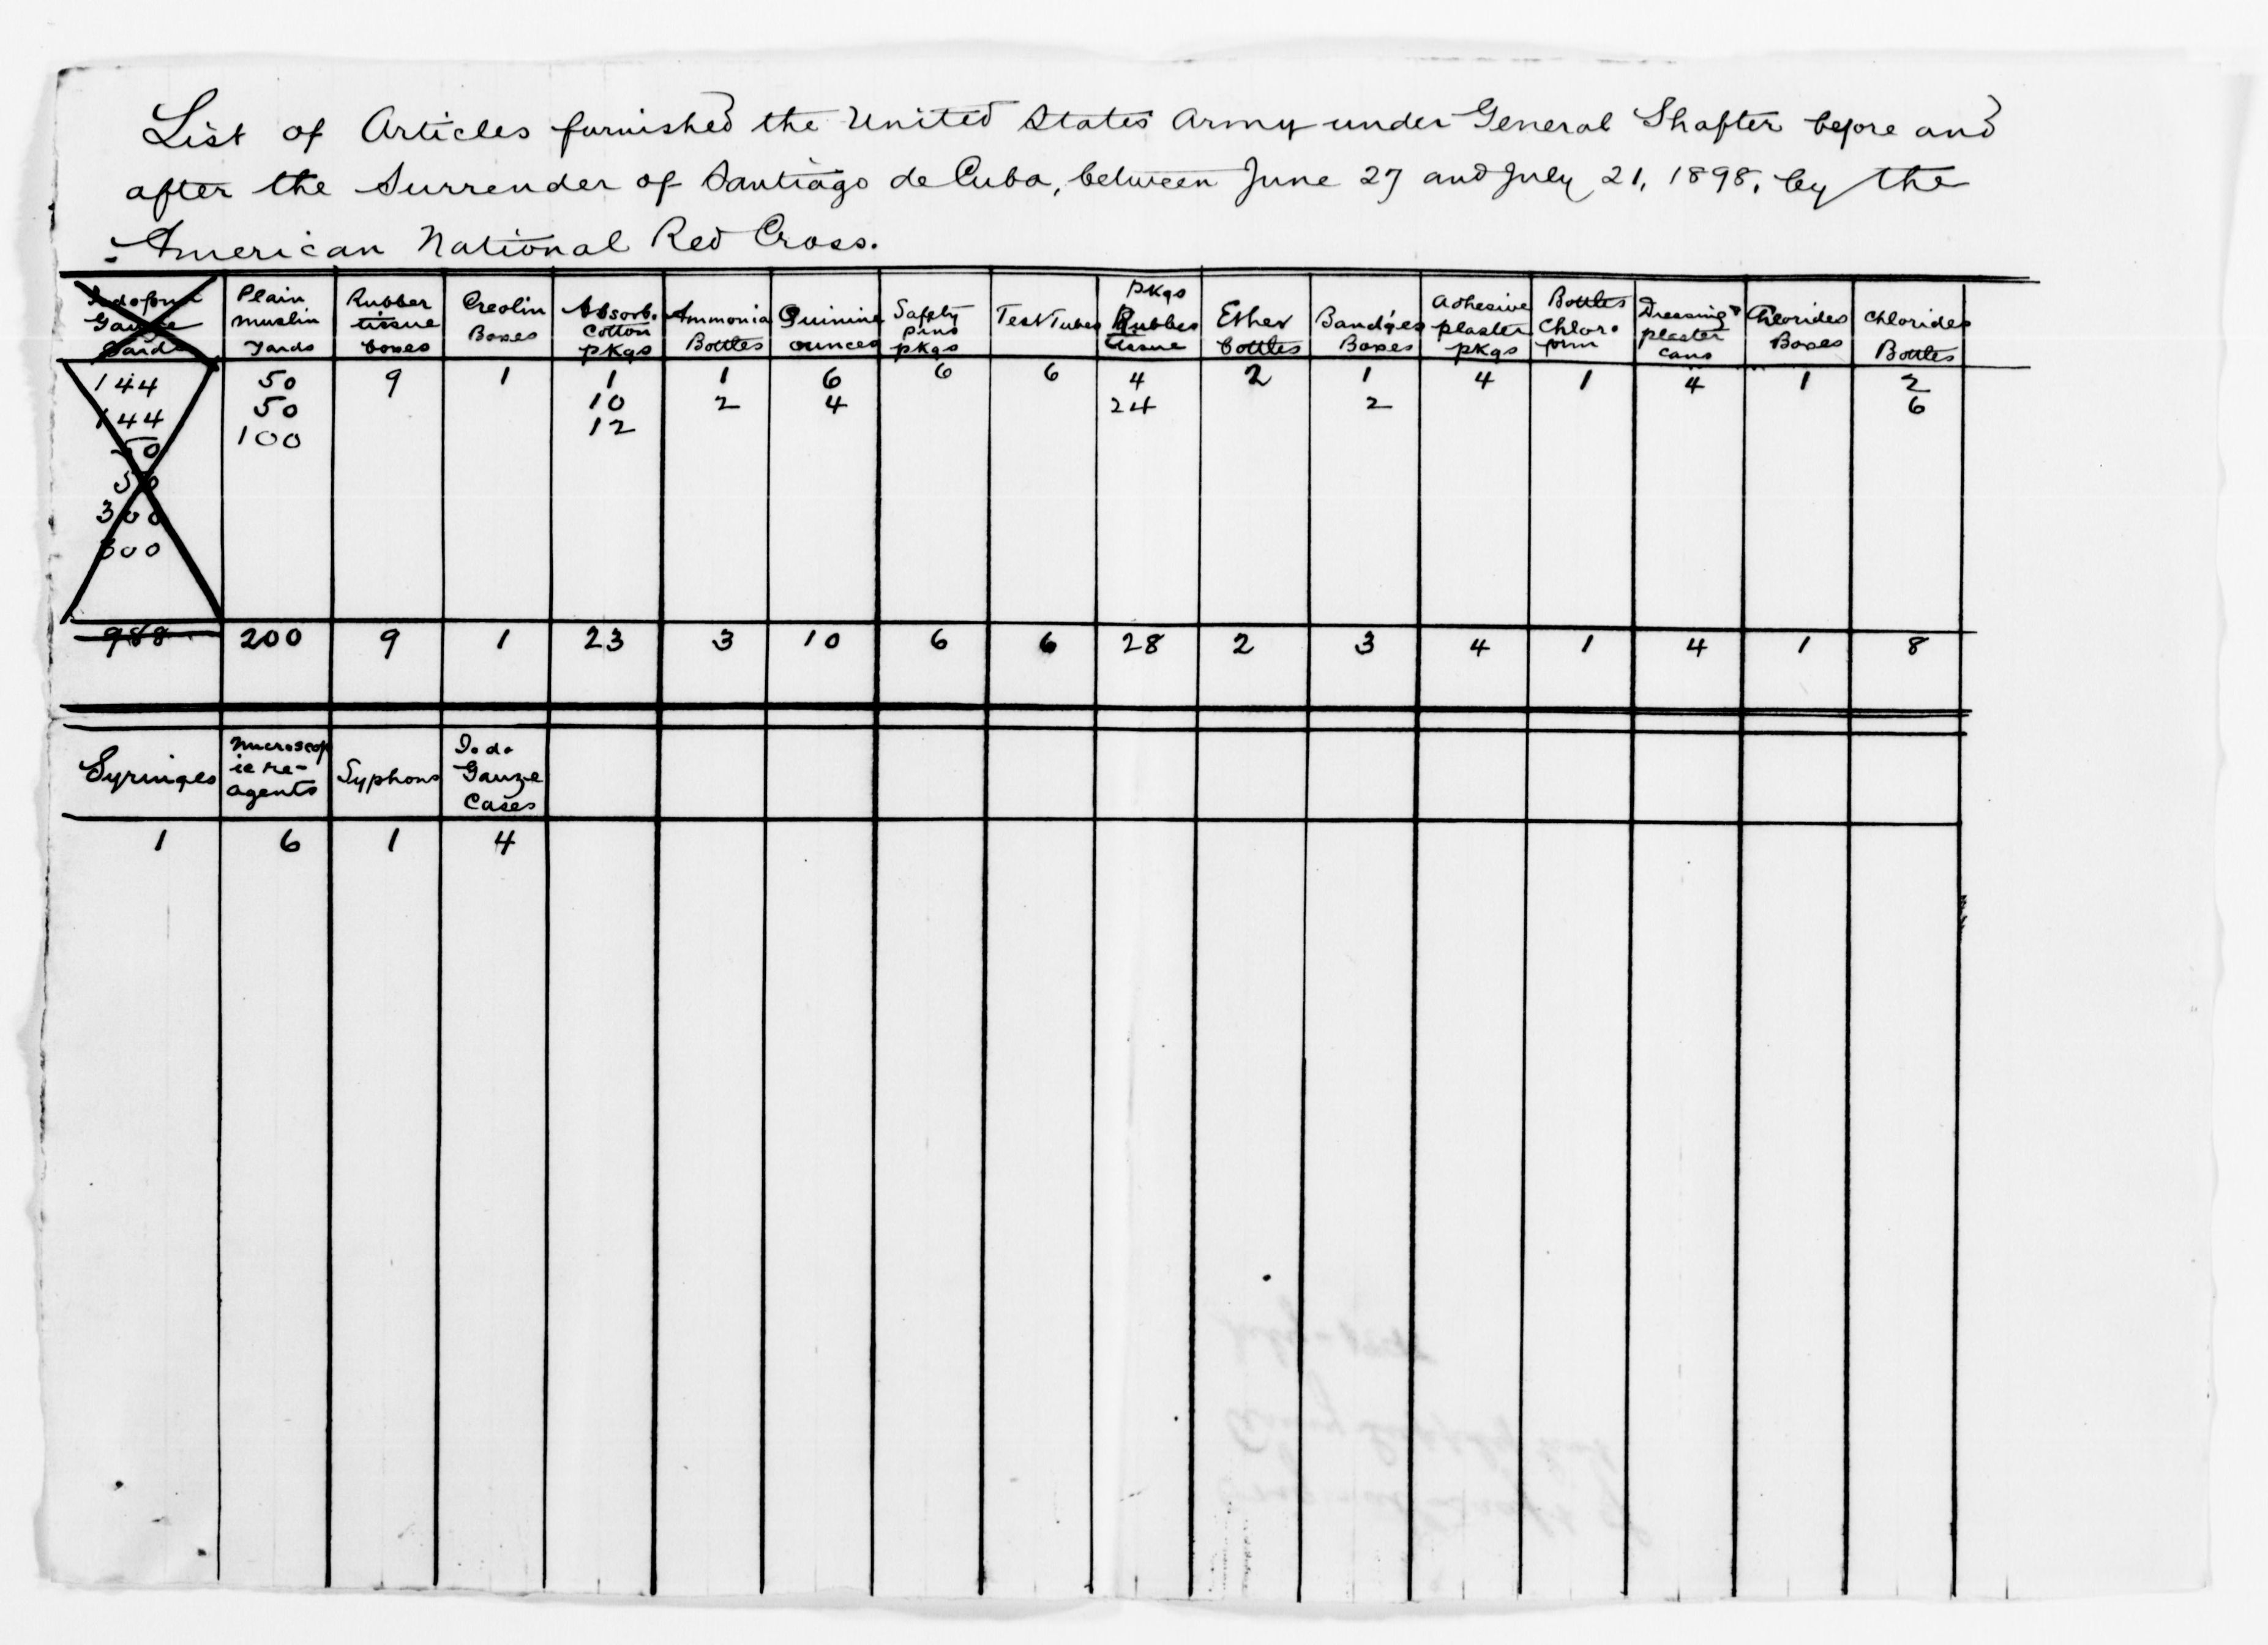 List of Articles furnished the United States Army under General Shafter before and
after the Surrender of Santiago de Cuba, between June 27 and July 21, 1898, by the
American National Red Cross.
Iodoform Gauze Yards
Plain muslin Yards
Rubber tissue boxes
Creolin Boxes
Absorb. Cotton pkgs
Ammonia Bottles
Quinine ounces
Safety Pins pkgs
Test Tubes
pkgs Rubber tissue
Ether bottles
Bandges Boxes
Adhesive plaster pkgs
Bottles Chloroform
Dressing plaster cans
Chlorides Boxes
Chlorides Bottles
144 50 9 1 1 1 6 6 6 4 2 1 4 1 4 1 2
144 50 10 2 4 24 2 6
50 100 12
50
300
300
988 200 9 1 23 3 10 6 6 28 2 3 4 1 4 1 8
Syringes
Microscop
ic re-
agents
Syphons
Iodo
Gauze
Cases
1 6 1 4